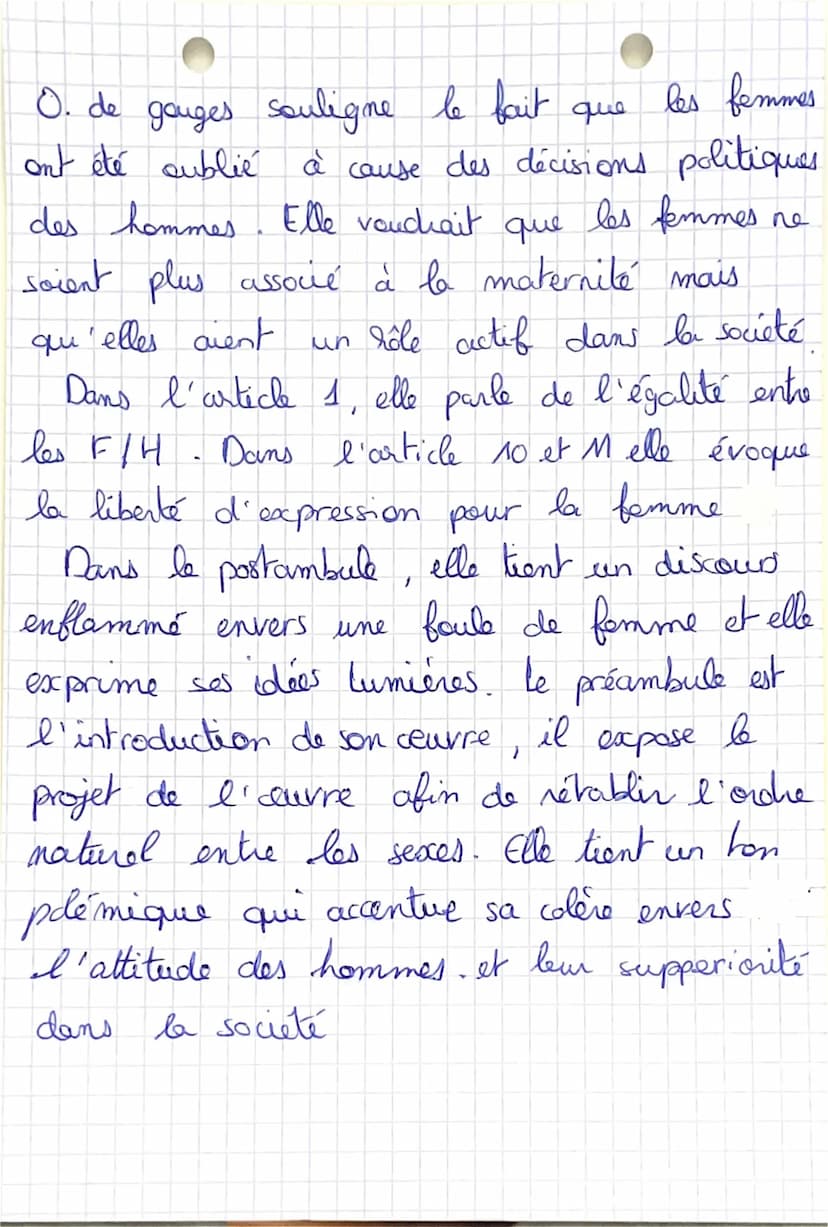 O. de gouges souligne le fait que les femmes
ont été oublié à cause des décisions politiques
des hommes. Elle voudrait que les femmes ne
soient plus associé à la maternité mais
qu'elles aient un rôle actif dans la société.
Dans l'article 1, elle parle de l'égalité entre
les F/H. Dans l'article 10 et 11 elle évoque
la liberté d'expression pour la femme
Dans le postambule, elle tient un discours
enflammé envers une foule de femme et elle
exprime ses idées lumières. Le préambule est
l'introduction de son œuvre, il expose le
projet de l'œuvre afin de rétablir l'ordre
naturel entre les sexes. Elle tient un ton
polémique qui accentue sa colère envers
l'attitude des hommes. et leur supperiorité
dans la société